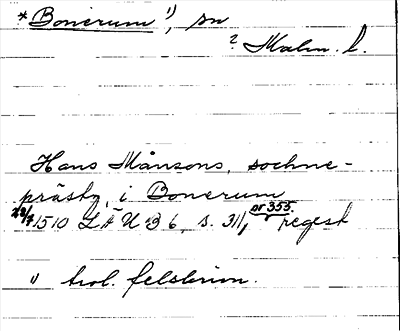 * Bonerum ¹⁾, sn
? Kalm. l.
Hans Månsons, sochne-
prästz, i Bonerum
22/7 1510 LÄUB 6, s. 311, nr 355. regest
¹⁾ trol. felskrivn.